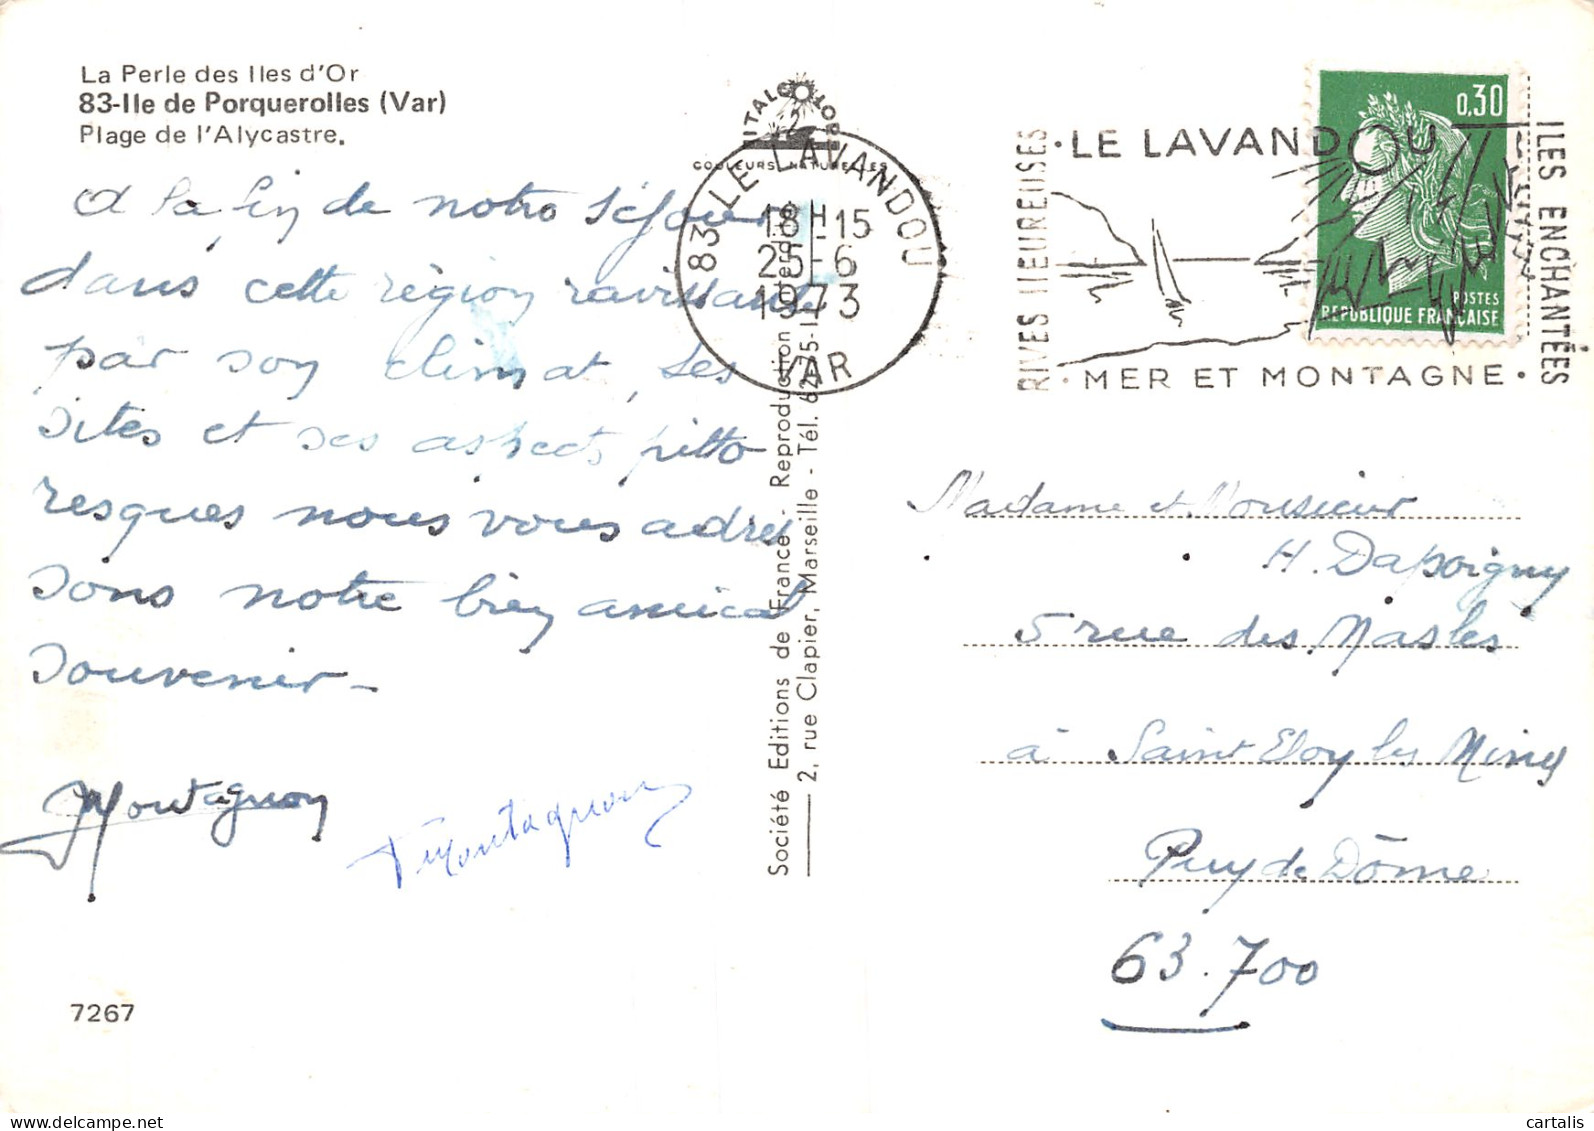 La Perle des Iles d'Or
83-Ile de Porquerolles (Var)
Plage de l'Alycastre.
A la fin de notre séjour
dans cette région ravissante
par son climat, ses
sites et ses aspects pitto
resques nous vous adres
sons notre bien amical
souvenir -
Montagnon
Montagnon
7267
ITALCOLOR
COULEURS NATURELLES
83 LE LAVANDOU
18H15
25-6
1973
VAR
Société Editions de France - Reproduction interdite
2, rue Clapier, Marseille - Tél. 62
RIVES HEUREUSES
• LE LAVANDOU
MER ET MONTAGNE •
ILES ENCHANTÉES
0,30
POSTES
REPUBLIQUE FRANÇAISE
Madame et Monsieur
H. Dapoigny
5 rue des Nasles
à Saint Eloy les Mines
Puy de Dôme
63.700